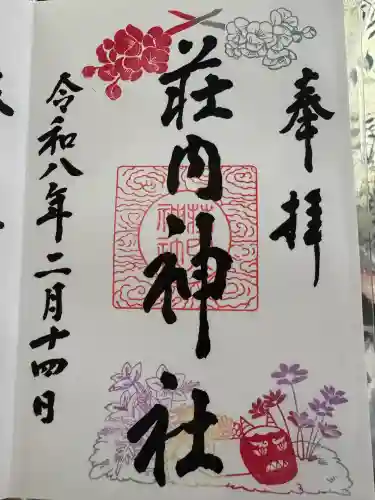 奉拝
荘内神社
荘内神社
令和八年二月十四日